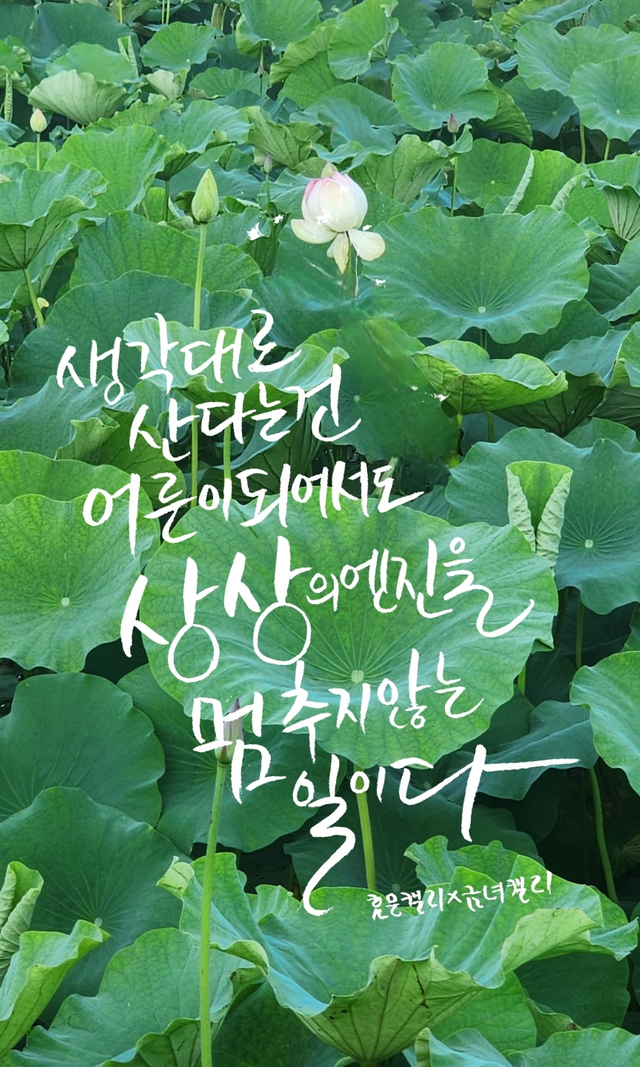 생각대로
산다는건
어른이되어서도
상상의엔진을
멈추지않는
일이다
흠문캘리x금녀캘리